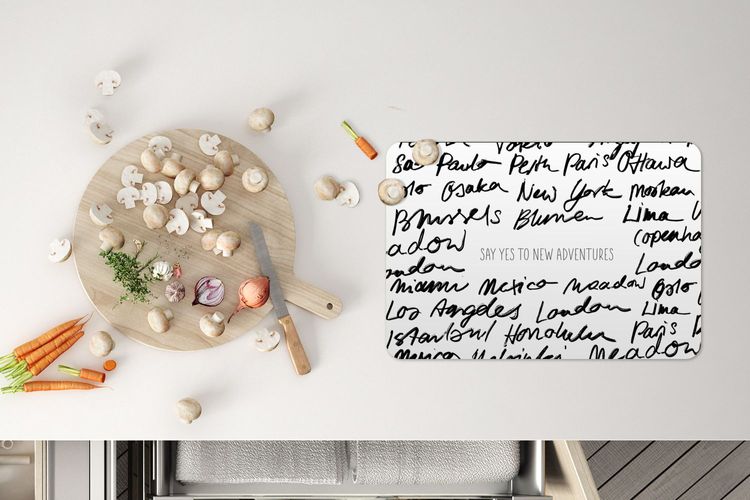 São Paulo Perth Paris Ottawa
Oslo Osaka New York
Brussels Blumen Lima
eadow Copenha
SAY YES TO NEW ADVENTURES
London Londo
Miami Mexico Meadow Oslo
Los Angeles London Lima
Istanbul Honolulu Paris
Mexico Helsinki Meadow